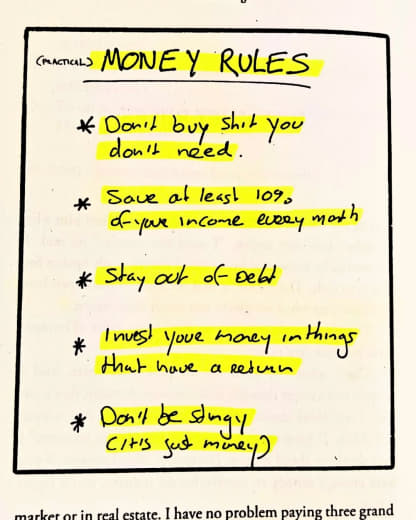 (PRACTICAL) MONEY RULES
* Don't buy shit you
don't need.
* Save at least 10%
of your income every month
* Stay out of Debt
* Invest your money in things
that have a return
* Don't be stingy
(it is just money)
market or in real estate. I have no problem paying three grand